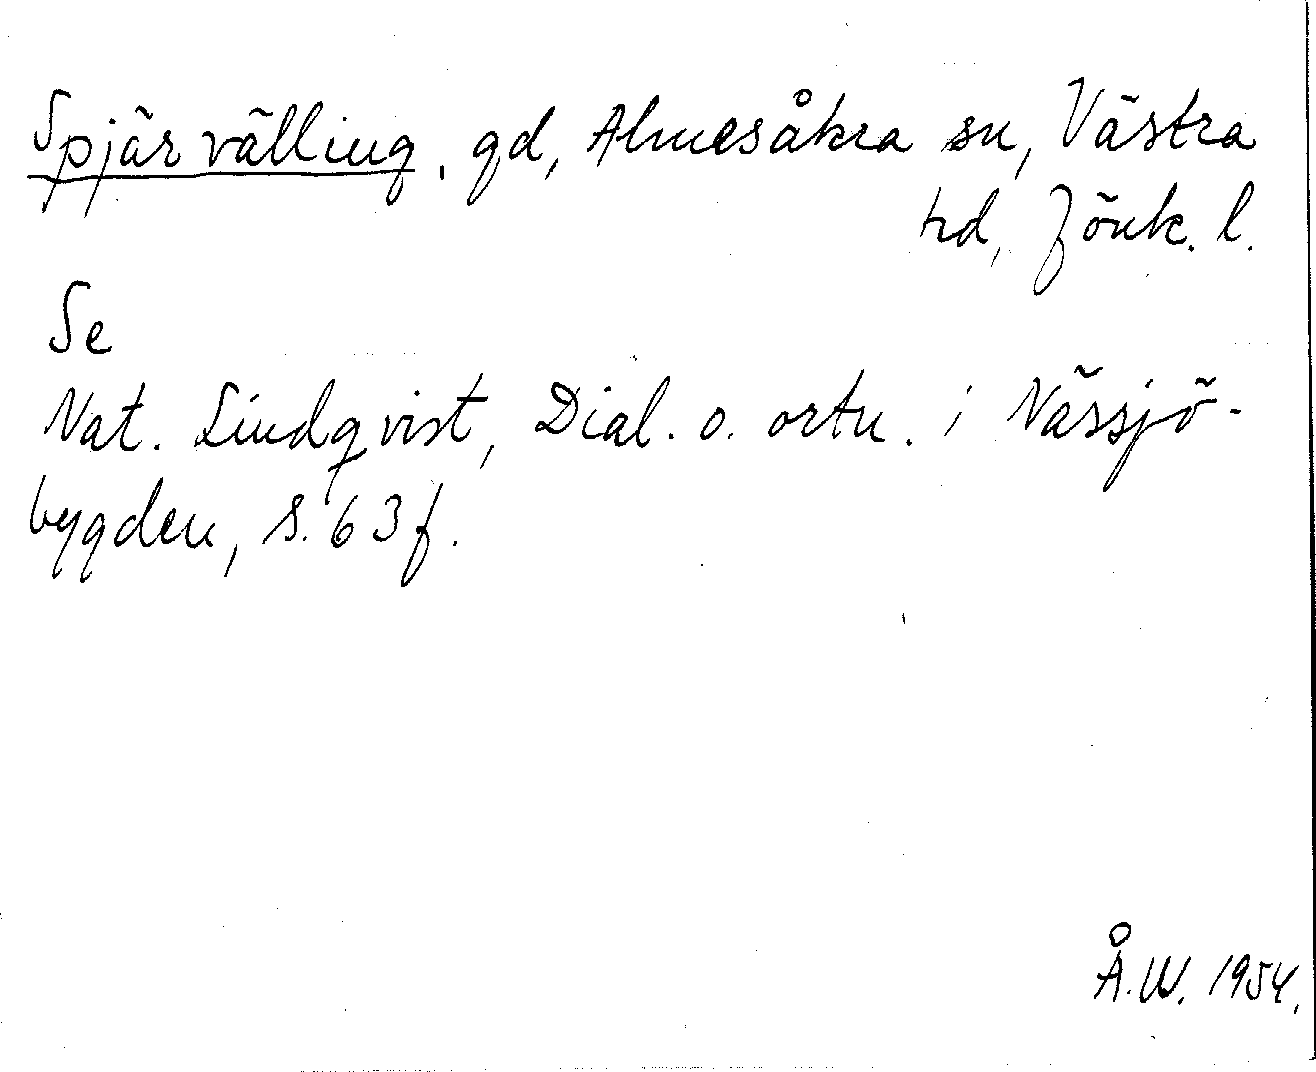 Spjärvälling, gd, Almesåkra sn, Västra
hd, Jönk. l.
Se
Nat. Lindqvist, Dial. o. ortn. i Nässjö-
bygden, s. 63 f.
Å.W. 1954.